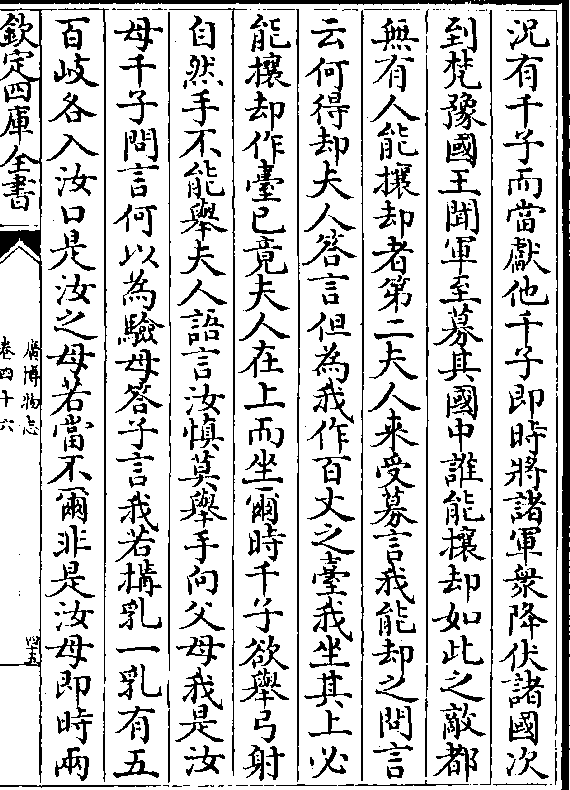 況有千子而當獻他千子即時將諸軍衆降伏諸國次
到梵豫國王聞軍至募其國中誰能攘却如此之敵都
無有人能攘却者第二夫人来受募言我能却之問言
云何得却夫人答言但為我作百丈之臺我坐其上必
能攘却作臺已竟夫人在上而坐爾時千子欲舉弓射
自然手不能舉夫人語言汝慎莫舉手向父母我是汝
母千子問言何以為驗母答子言我若搆乳一乳有五
百岐各入汝口是汝之母若當不爾非是汝母即時兩
欽定四庫全書
廣博物志
卷四十六
四五